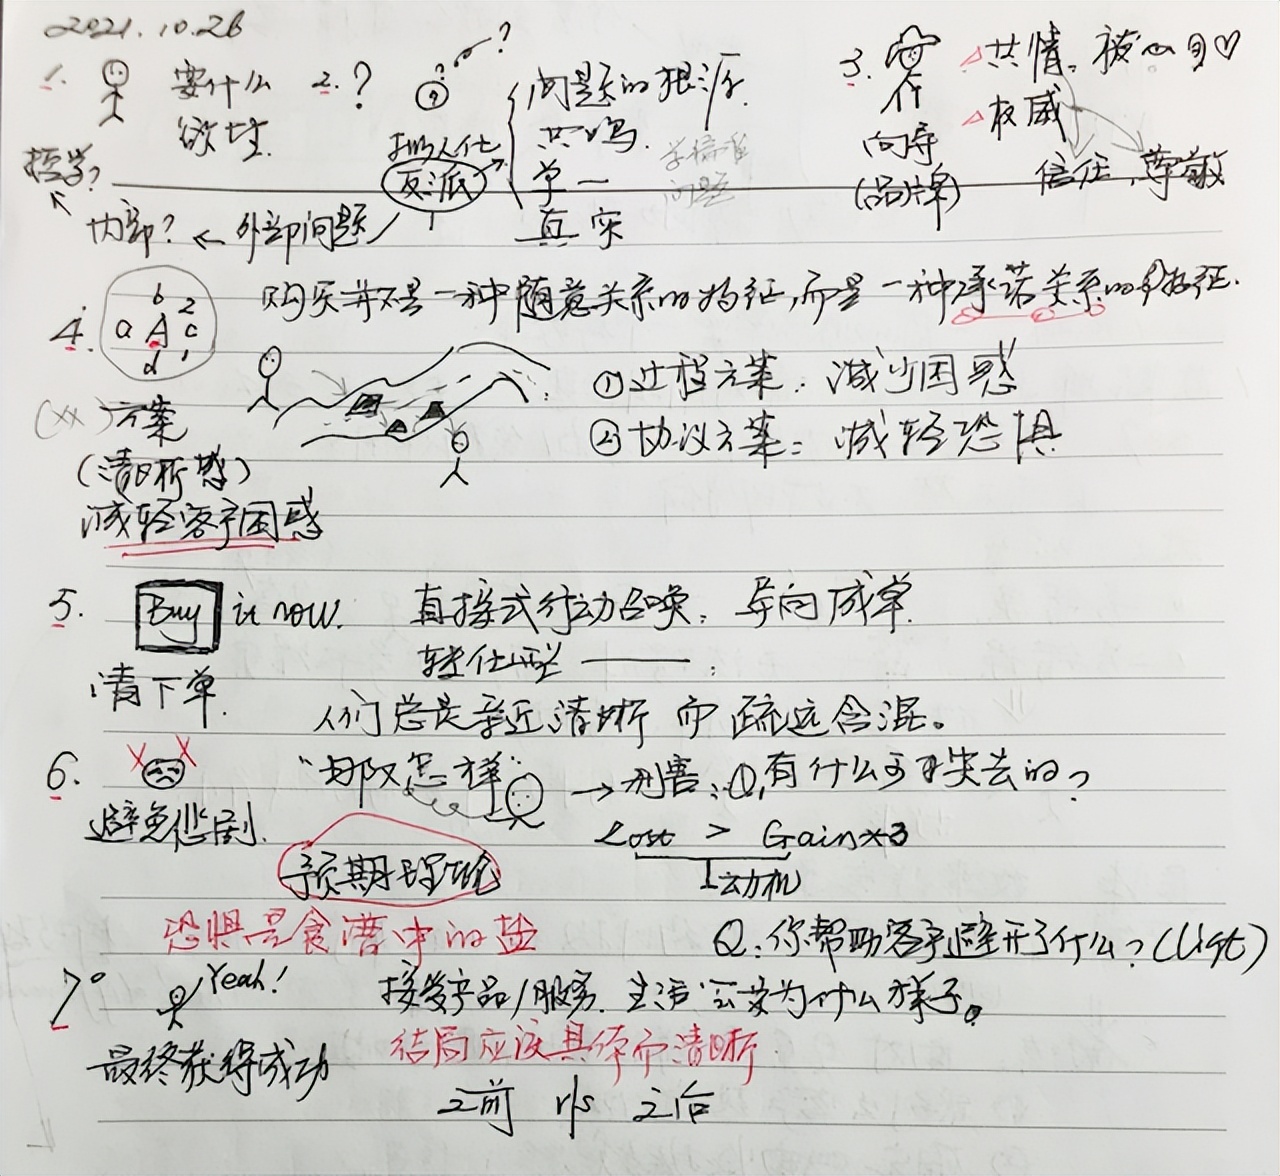 2021.10.26
1. 要什么 2. ? ? 问题的根源 3. △共情。被
欲望 拟人化 共鸣 向导 △权威
哲学? 反派 单一 (品牌) 信任,尊敬
内部? ← 外部问题 真实 问题
4. b 2 a A c d 1 购买并不是一种随意关系的特征,而是一种承诺关系的特征.
(xx)方案 ①过程方案:减少困惑
(清晰感) ②协议方案:减轻恐惧
减轻客户困惑
5. Buy it now. 直接式行动召唤:导向成单.
请下单. 转化型 ——:
人们总是亲近清晰而疏远含混。
6. "那又怎样" → 利害:①有什么可失去的?
避免悲剧. Lost > Gain×3
预期理论 动机
恐惧是食谱中的盐 Q:你帮助客户避开了什么?(List)
7° Yeah! 接受产品/服务.生活会变为什么样子。
最终获得成功 结局应该具体而清晰.
之前 v/s 之后